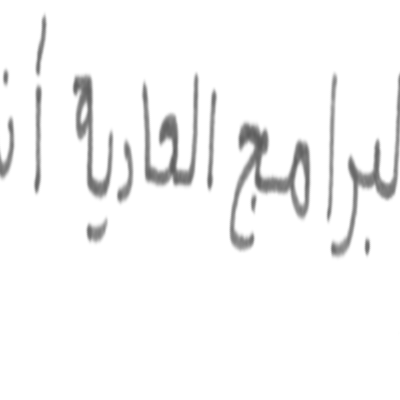 لبرامج العادية أن